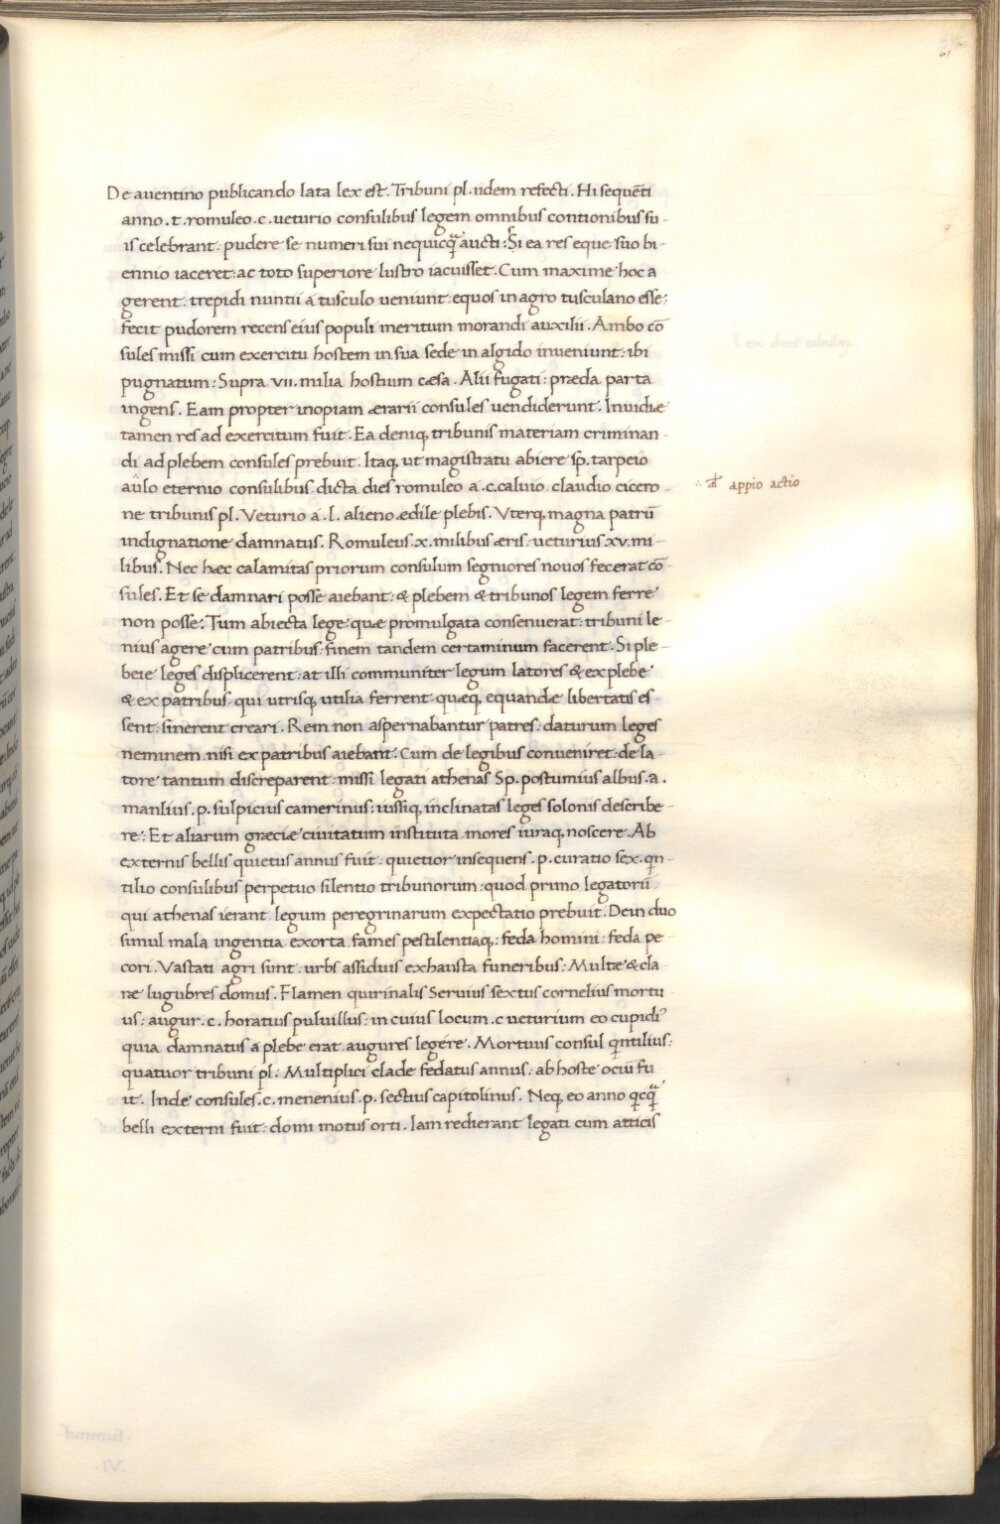 De auentino publicando lata lex est. Tribuni pl. iidem refecti. Hi sequēti
anno .t. romuleo .c. ueturio consulibus legem omnibus contionibus su-
is celebrant: pudere se numeri sui nequicq̄ aucti: Si ea res eque suo bi-
ennio iaceret: ac toto superiore lustro iacuisset. Cum maxime hoc a
gerent: trepidi nuntii a tusculo ueniunt: equos in agro tusculano esse:
fecit pudorem recens eius populi meritum morandi auxilii. Ambo cō
sules missi cum exercitu hostem in sua sede in algido inueniunt: ibi
pugnatum: Supra vii. milia hostium cæsa. Alii fugati: præda parta
ingens. Eam propter inopiam ærarii consules uendiderunt. Inuidiæ
tamen res ad exercitum fuit. Ea deniq; tribunis materiam criminan-
di ad plebem consules prebuit. Itaq; ut magistratu abiere sp. tarpeio
aulo eternio consulibus dicta dies romuleo a .c. caluio claudio cicero-
ne tribunis pl. Veturio a .l. alieno ædile plebis. Vterq; magna patrū
indignatione damnatus. Romuleus .x. milibus æris: ueturius xv. mi-
libus. Nec hæc calamitas priorum consulum segniores nouos fecerat cō-
sules. Et se damnari posse aiebant: & plebem & tribunos legem ferre
non posse: Tum abiecta lege quæ promulgata consenuerat: tribuni le-
nius agere cum patribus: finem tandem certaminum facerent. Si ple-
beie leges displicerent: at illi communiter legum latores & ex plebe
& ex patribus qui utrisq; utilia ferrent quæq; equandæ libertatis es-
sent: sinerent creari. Rem non aspernabantur patres: daturum leges
neminem nisi ex patribus aiebant. Cum de legibus conueniret: de la-
tore tantum discreparent: missi legati athenas Sp. postumius albus .a.
manlius .p. sulpicius camerinus: iussiq; inclinatas leges solonis describe-
re: Et aliarum græciæ ciuitatum instituta mores iuraq; noscere. Ab
externis bellis quietus annus fuit: quietior insequens .p. curatio sex. qn-
tilio consulibus perpetuo silentio tribunorum: quod primo legatorū
qui athenas ierant legum peregrinarum expectatio prebuit. Dein duo
simul mala ingentia exorta fames pestilentiaq;: feda homini: feda pe-
cori. Vastati agri sunt: urbs assiduis exhausta funeribus: Multæ & cla
ræ lugubres domus. Flamen quirinalis Seruius sextus cornelius mortu
us: augur .c. horatius puluillus: in cuius locum .c ueturium eo cupidi⁹
quia damnatus a plebe erat augures legere. Mortuus consul qntilius:
quatuor tribuni pl. Multiplici clade fedatus annus: ab hoste ociū fu
it. Inde consules .c. menenius .p. sectius capitolinus. Neq; eo anno qcq̄
belli externi fuit: domi motus orti. Iam redierant legati cum atticis
appio actio